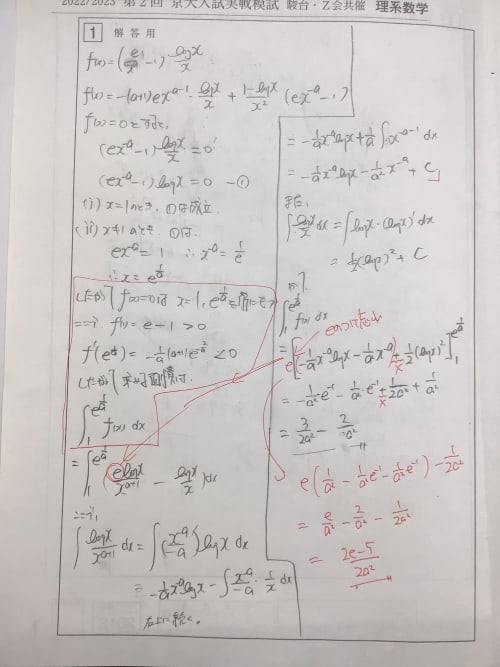 2022/2023 第2回 京大入試実戦模試 駿台・Z会共催 理系数学
1 解答用
f(x)=(e/x^a -1) logx/x
f'(x)=-(a+1)ex^{-a-1}・logx/x + (1-logx)/x² (ex^{-a}-1)
f(x)=0とすると、
(ex^{-a}-1) logx/x =0
(ex^{-a}-1) logx =0 -①
(i) x=1のとき、①は成立。
(ii) x≠1のとき、①は、
ex^{-a}=1 ∴ x^{-a}=1/e
∴ x=e^{1/a}
したがって f(x)=0は x=1, e^{1/a}を解にもつ
ここで f'(1)=e-1>0
したがって 求める面積は、
∫_1^{e^{1/a}} f(x) dx
=∫_1^{e^{1/a}} (elogx/x^{a+1} - logx/x)dx
ここで、
∫ logx/x^{a+1} dx = ∫ (x^{-a}/-a)' logx dx
= -1/a x^{-a}logx - ∫ x^{-a}/-a・1/x dx
右上に続く。
= -1/a x^{-a}logx + 1/a ∫ x^{-a-1} dx
= -1/a x^{-a}logx - 1/a² x^{-a} + C
また、
∫ logx/x dx = ∫ logx・(logx)' dx
= 1/2 (logx)² + C
より、
∫_1^{e^{1/a}} f(x) dx
= e[-1/a x^{-a}logx - 1/a² x^{-a} + 1/2 (logx)²]_1^{e^{1/a}}
= -1/a² e^{-1} - 1/a² e^{-1} + 1/2a² + 1/a²
= 3/2a² - 2/
e(1/a² - 1/a² e^{-1} - 1/a² e^{-1}) - 1/2a²
= e/a² - 2/a² - 1/2a²
= (2e-5)/2a²